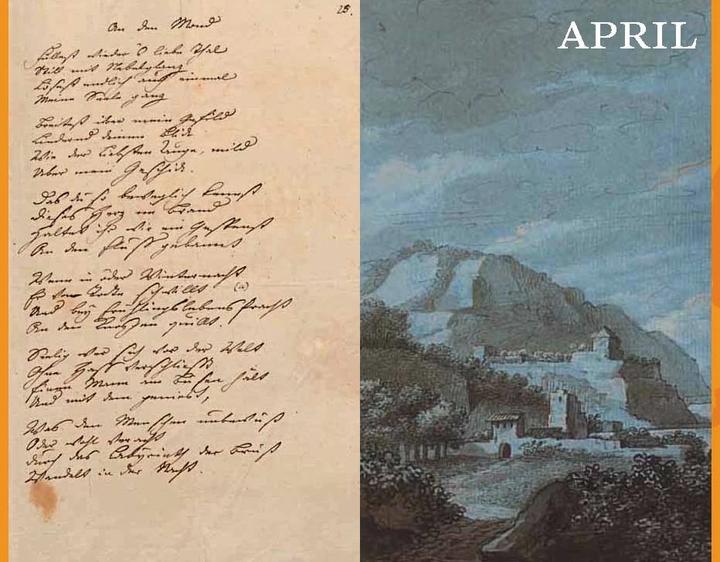 An den Mond
Füllest wieder's liebe Thal
Still mit Nebelglanz
Lösest endlich auch einmal
Meine Seele ganz
Breitest über mein Gefild
Lindernd deinen Blick
Wie der Liebsten Auge, mild
Über mein Geschick.
Das du so beweglich kennst
Dieses Herz im Brand
Haltet ihr wie ein Gespenst
An den Fluß gebannt
Wenn in öder Winternacht
Er vom Todte schwillt
Und bey Frühlingslebens Pracht
An den Knospen quillt.
Seelig wer sich vor der Welt
Ohne Haß verschließt
Einen Mann am Busen hält
Und mit dem genießt,
Was den Menschen unbewußt
Oder wohl veracht
Durch das Labyrinth der Brust
Wandelt in der Nacht.
APRIL